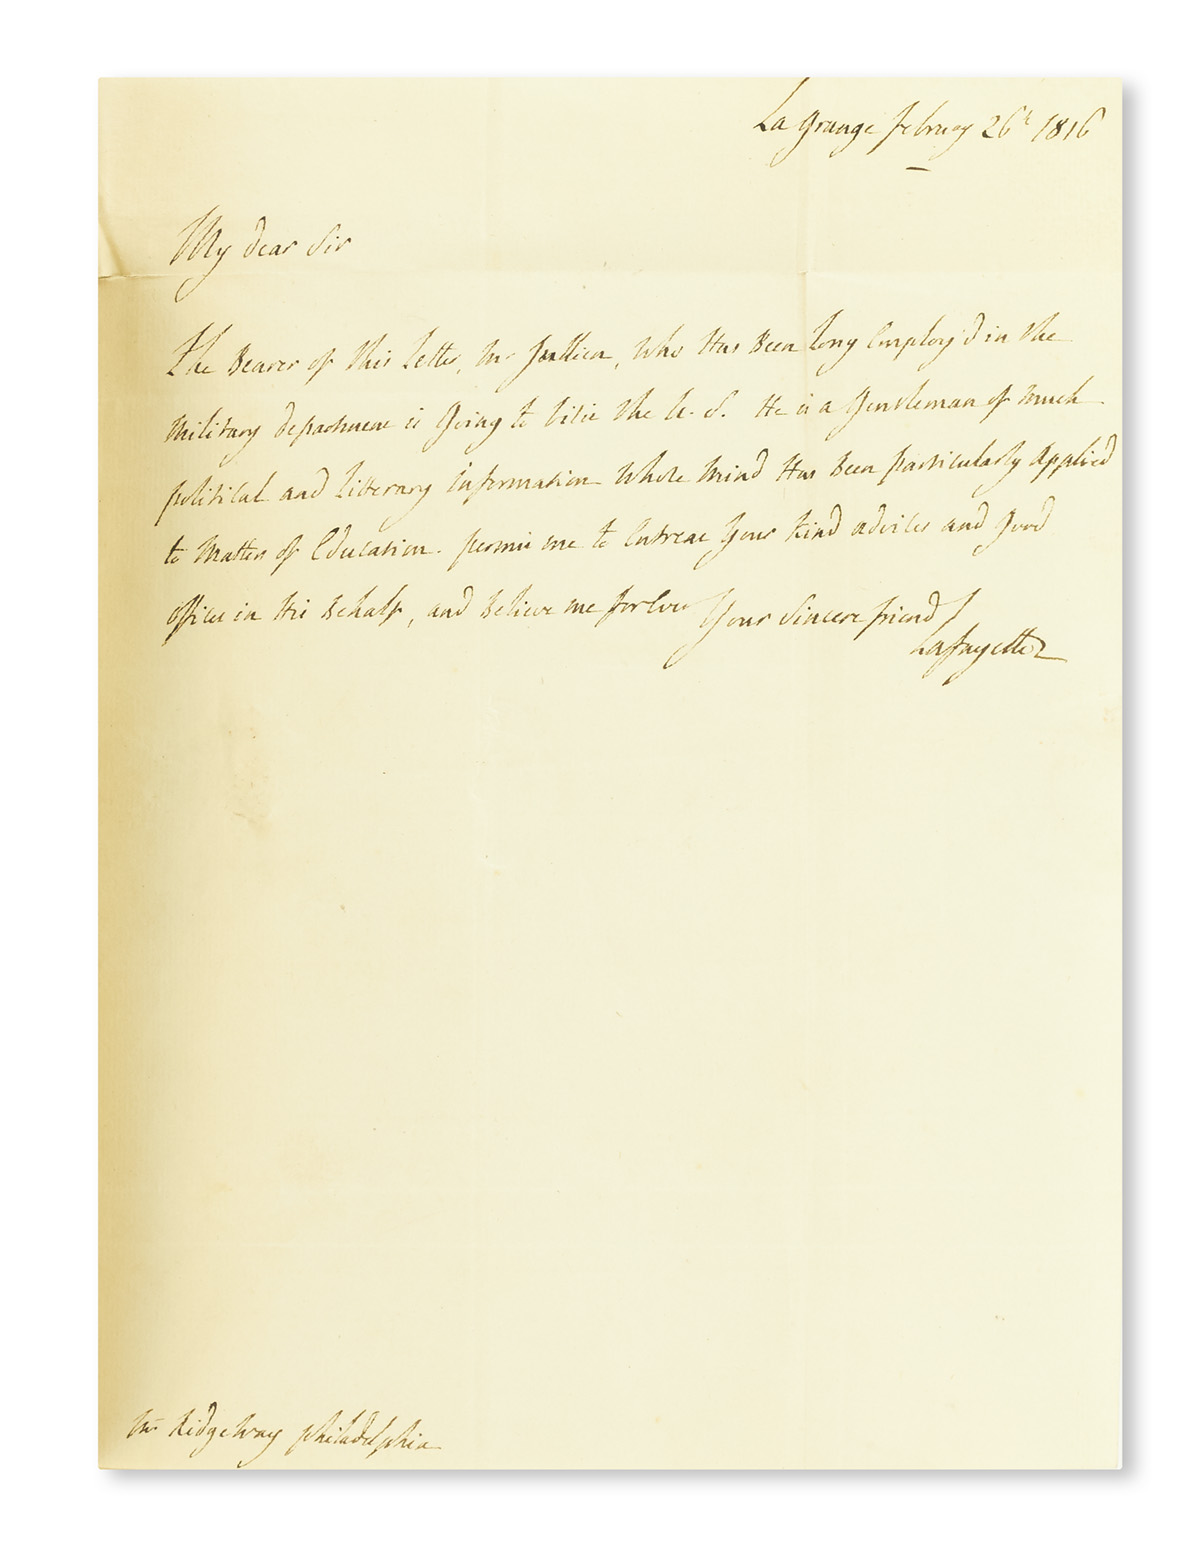 La grange february 26th 1816
My dear Sir
The Bearer of this Letter, Mr Jullien, Who Has Been long Employ'd in the
Military department is Going to visit the U. S. He is a Gentleman of much
political and Litterary Information Whose Mind Has Been particularly Applied
to Matters of Education. permit me to Entreat Your Kind advices and Good
offices in His Behalf, and Believe me forever
Your Sincere friend
Lafayette
Mr Ridgeway philadelphia